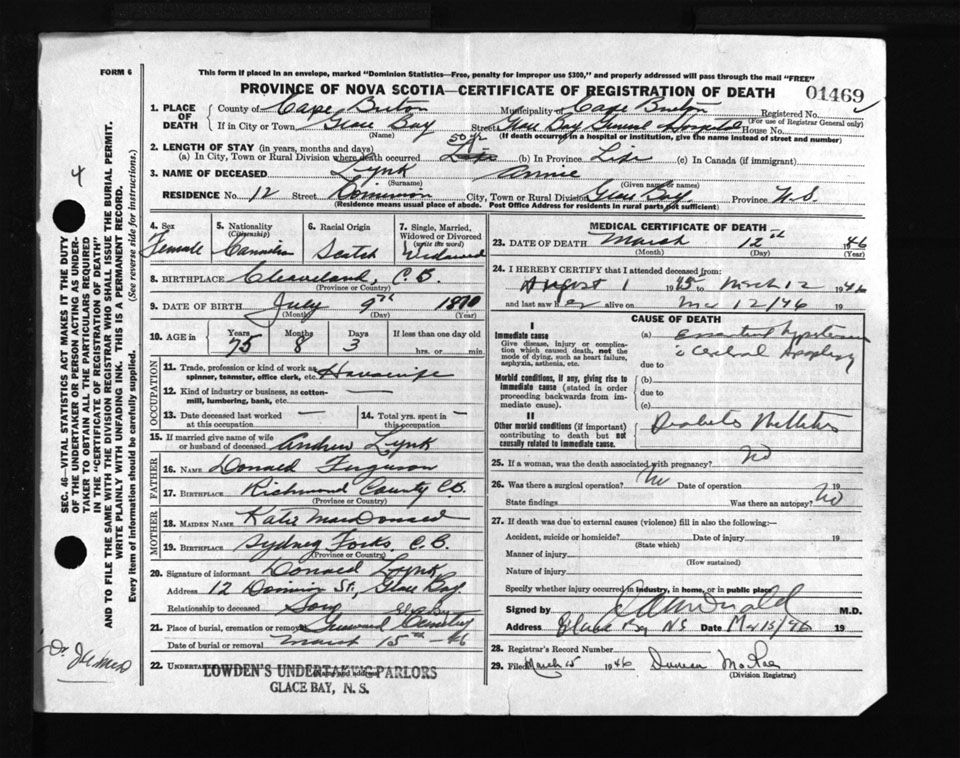 FORM 6
This form if placed in an envelope, marked "Dominion Statistics—Free, penalty for improper use $300," and properly addressed will pass through the mail "FREE"
PROVINCE OF NOVA SCOTIA—CERTIFICATE OF REGISTRATION OF DEATH
01469
SEC. 46—VITAL STATISTICS ACT MAKES IT THE DUTY
OF THE UNDERTAKER OR PERSON ACTING AS UNDER-
TAKER TO OBTAIN ALL THE PARTICULARS REQUIRED
IN THE "CERTIFICATE OF REGISTRATION OF DEATH"
AND TO FILE THE SAME WITH THE DIVISION REGISTRAR WHO SHALL ISSUE THE BURIAL PERMIT.
WRITE PLAINLY WITH UNFADING INK. THIS IS A PERMANENT RECORD.
Every item of information should be carefully supplied. (See reverse side for instructions.)
4
1. PLACE OF DEATH
County of Cape Breton Municipality of Cape Breton Registered No.
(For use of Registrar General only)
If in City or Town Glace Bay Street Glace Bay General Hospital House No.
(Name) (If death occurred in a hospital or institution, give the name instead of street and number)
2. LENGTH OF STAY (in years, months and days)
50 yr
(a) In City, Town or Rural Division where death occurred Life (b) In Province Life (c) In Canada (if immigrant)
3. NAME OF DECEASED Lynk Annie
(Surname) (Given name or names)
RESIDENCE No. 12 Street Dominion City, Town or Rural Division Glace Bay. Province N.S.
(Residence means usual place of abode. Post Office Address for residents in rural parts not sufficient)
4. Sex Female
5. Nationality (Citizenship) Canadian
6. Racial Origin Scotch
7. Single, Married, Widowed or Divorced (write the word) Widowed
8. BIRTHPLACE Cleaveland, C.B.
(Province or Country)
9. DATE OF BIRTH July 9th 1870
(Month) (Day) (Year)
10. AGE in Years 75 Months 8 Days 3 If less than one day old
hrs. or min.
OCCUPATION
11. Trade, profession or kind of work as spinner, teamster, office clerk, etc. Housewife
12. Kind of industry or business, as cotton-mill, lumbering, bank, etc. —
13. Date deceased last worked at this occupation —
14. Total yrs. spent in this occupation —
15. If married give name of wife or husband of deceased Andrew Lynk
FATHER
16. NAME Donald Ferguson
17. BIRTHPLACE Richmond County C.B.
(Province or Country)
MOTHER
18. MAIDEN NAME Katie MacDonald
19. BIRTHPLACE Sydney Forks C.B.
(Province or Country)
20. Signature of informant Donald Lynk
Address 12 Dominion St., Glace Bay.
Relationship to deceased Son
Gl. Bay
21. Place of burial, cremation or removal Greenwood Cemetery
Date of burial or removal March 15th -46
22. UNDERTAKER (Name and address)
LOWDEN'S UNDERTAKING PARLORS
GLACE BAY, N. S.
MEDICAL CERTIFICATE OF DEATH
23. DATE OF DEATH March 12th 1946
(Month) (Day) (Year)
24. I HEREBY CERTIFY that I attended deceased from:
August 1 1945 to March 12 1946
and last saw her alive on Mc 12/46 19
CAUSE OF DEATH
I
Immediate cause
Give disease, injury or complication which caused death, not the mode of dying, such as heart failure, asphyxia, asthenia, etc.
(a) Essential Hypertension
c Cerebral Apoplexy
due to
Morbid conditions, if any, giving rise to immediate cause (stated in order proceeding backwards from immediate cause).
(b)
due to
(c)
II
Other morbid conditions (if important) contributing to death but not causally related to immediate cause.
Diabetes Mellitus
25. If a woman, was the death associated with pregnancy? No
26. Was there a surgical operation? No Date of operation 19
State findings Was there an autopsy? No
27. If death was due to external causes (violence) fill in also the following:—
Accident, suicide or homicide? Date of injury 19
(State which)
Manner of injury
(How sustained)
Nature of injury
Specify whether injury occurred in industry, in home, or in public place
Signed by M.D.
Address Glace Bay NS Date Mar 15/46 19
28. Registrar's Record Number
29. Filed March 15 1946 Duncan MacRae
(Division Registrar)
Dr.